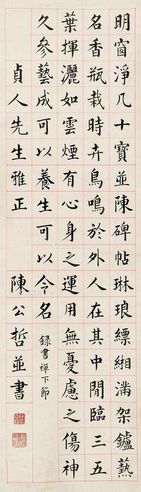 明窗淨几十寶並陳碑帖琳琅縹緗滿架鑪爇
名香瓶栽時卉鳥鳴於外人在其中閒臨三五
葉揮灑如雲煙有心身之運用無憂慮之傷神
久參藝成可以養生可以今名
錄書禪下節
貞人先生雅正
陳公哲並書